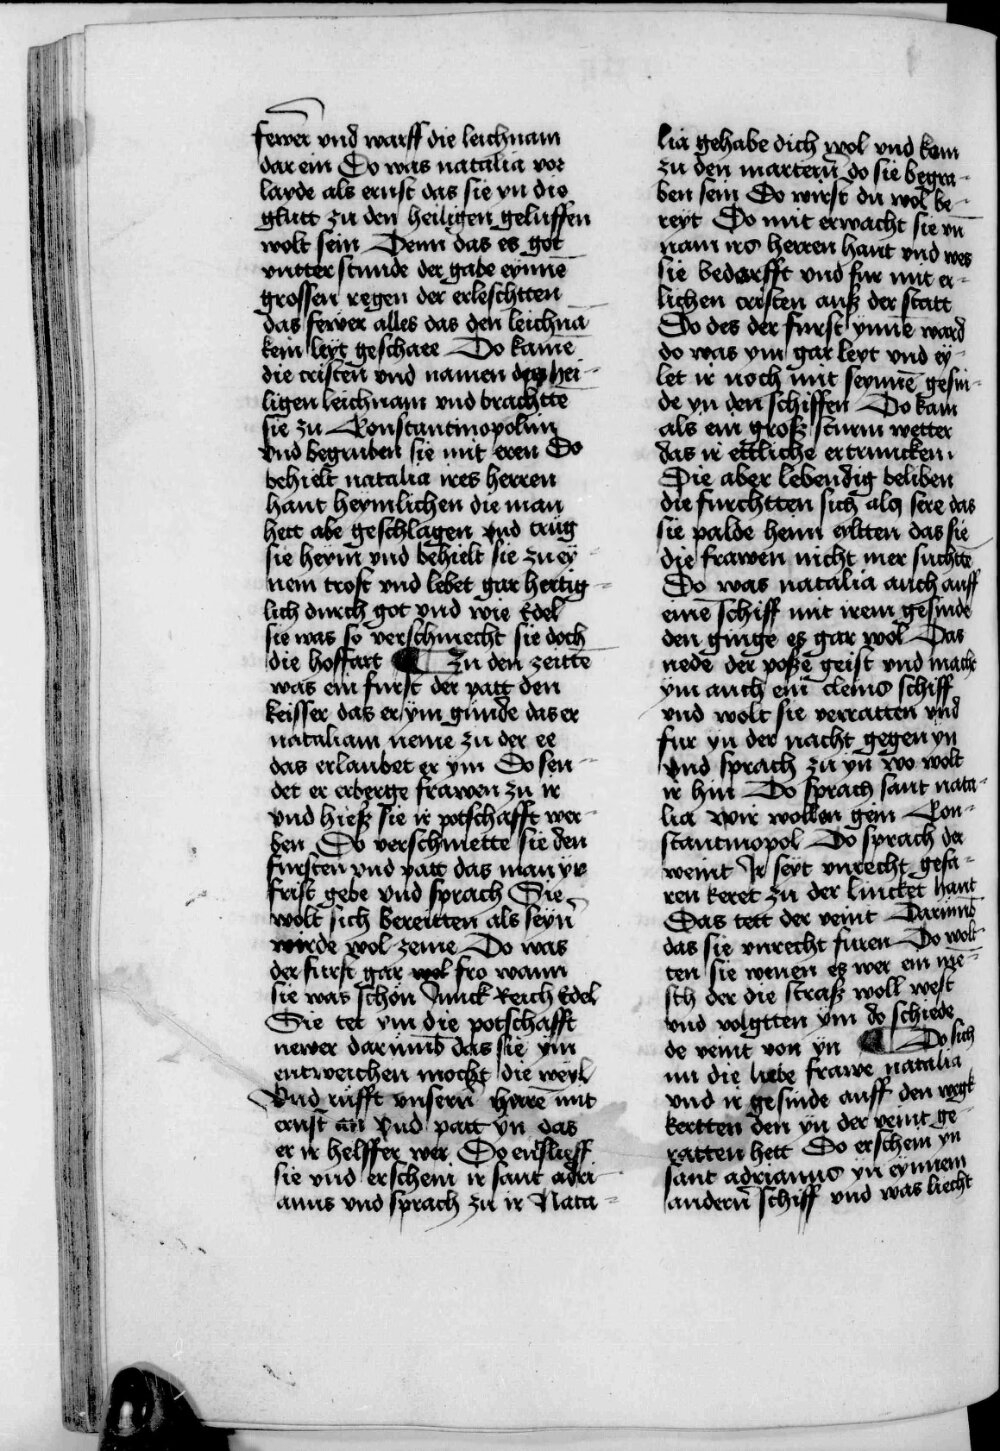 fewer vnd warff die leichnam
dar ein Do was natalia vor
layde als ernst das sie yn die
glutt zu den heiligen geluffen
wolt sein Denn das es got
vntterstunde der gabe eynnē
grossen regen der erleschtten
das fewer alles das den leichnā
kein leyt geschaee Do kamē
die cristen vnd namen der hei-
ligen leichnam vnd brachttē
sie zu Konstantinopolim
vnd begruben sie mit eren Do
behielt natalia ires herren
hant heymlichen die man
hett abe geschlagen vnd trug
sie heym vnd behielt sie zu ey-
nem trost vnd lebet gar hertig-
lich durch got vnd wie Edel
sie was so verschmecht sie doch
die hoffart Zu den zeittē
was ein furst der patt den
keisser das er ym gunde das er
nataliam neme zu der ee
das erlaubet er ym Do sen-
det er erberge frawen zu ir
vnd hieß sie ir potschafft wer-
ben Do verschmette sie den
fursten vnd patt das man yr
frist gebe vnd sprach Sie
wolt sich bereitten als seyn̄
wirde wol zeme Do was
der furst gar wol fro wann
sie was schon Junck Reich Edel
Sie tet ym die potschafft
newer darumb das sie ym
entweichen mocht die weyl
Vnd rufft vnsern̄ herrē mit
ernst an vnd patt yn das
er ir helffer wer Do enslieff
sie vnd erschein ir sant adri
anus vnd sprach zu ir Nata-
lia gehabe dich wol vnd kom
zu den martern̄ do sie begra-
ben sein Do wirst du wol be-
reyt Do mit erwacht sie vn̄
nam irs herren hant vnd wes
sie bedorfft vnd fur mit er-
lichen cristen auß der statt
Do des der furst ynnē ward
do was ym gar leyt vnd ey-
let ir noch mit seynnē gesin-
de yn den schiffen Do kam
als ein groß sturm wetter
das ir ettliche ertruncken
Die aber lebendig beliben
die furchtten sich als sere das
sie palde heim eyltten das sie
die frawen nicht mer suchtē
Do was natalia auch auff
einē schiff mit irem gesinde
den ginge es gar wol Das
nede der poße geist vnd macht
ym auch ein cleins schiff
vnd wolt sie verratten vnd
fur yn der nacht gegen yn
vnd sprach zu yn wo wolt
ir hin Do sprach sant nata-
lia wir wollen gein Kon-
stantinopol Do sprach der
veint Ir seyt vnrecht gefa-
ren keret zu der lincket hant
Das tett der veint Darumb
das sie vnrecht furen Do wolt
ten sie wenen es wer ein me-
sch der die straß woll west
vnd volgtten ym do schiede
de veint von yn Do sich
nu die liebe frawe natalia
vnd ir gesinde auff den wegk
kertten den yn der veint ge
ratten hett Do erschein yn
sant adrianus yn eynnem
andern̄ schiff vnd was liecht